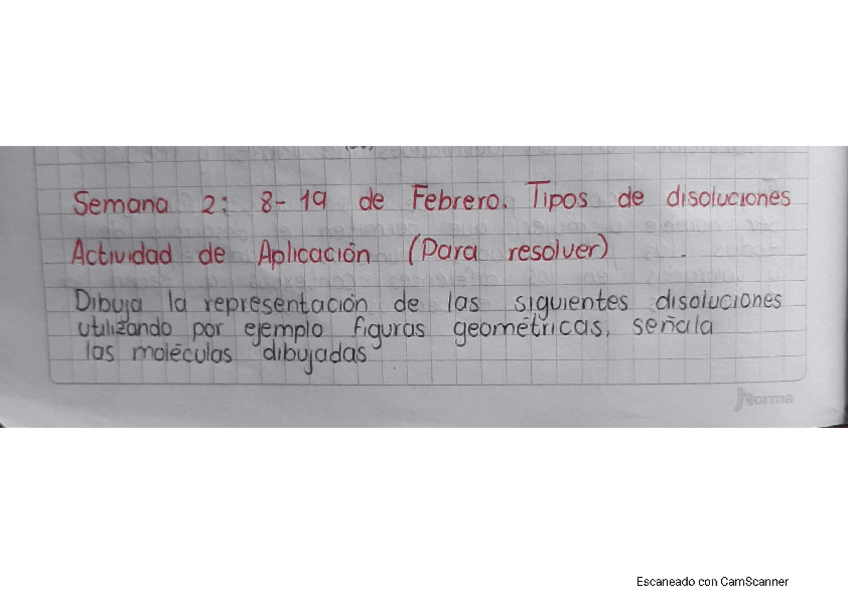 Semana 2: 8-19 de Febrero. Tipos de disoluciones
Actividad de Aplicación (Para resolver)
Dibuja la representación de las siguientes disoluciones
utilizando por ejemplo figuras geométricas, señala
las moléculas dibujadas
Norma
Escaneado con CamScanner